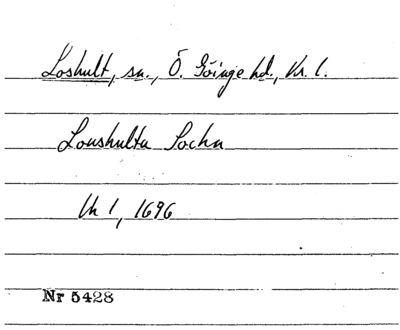 Loshult, sn., Ö. Göinge hd., Kr. l.
Loushulta Sochn
Uh 1, 1696
Nr 5428